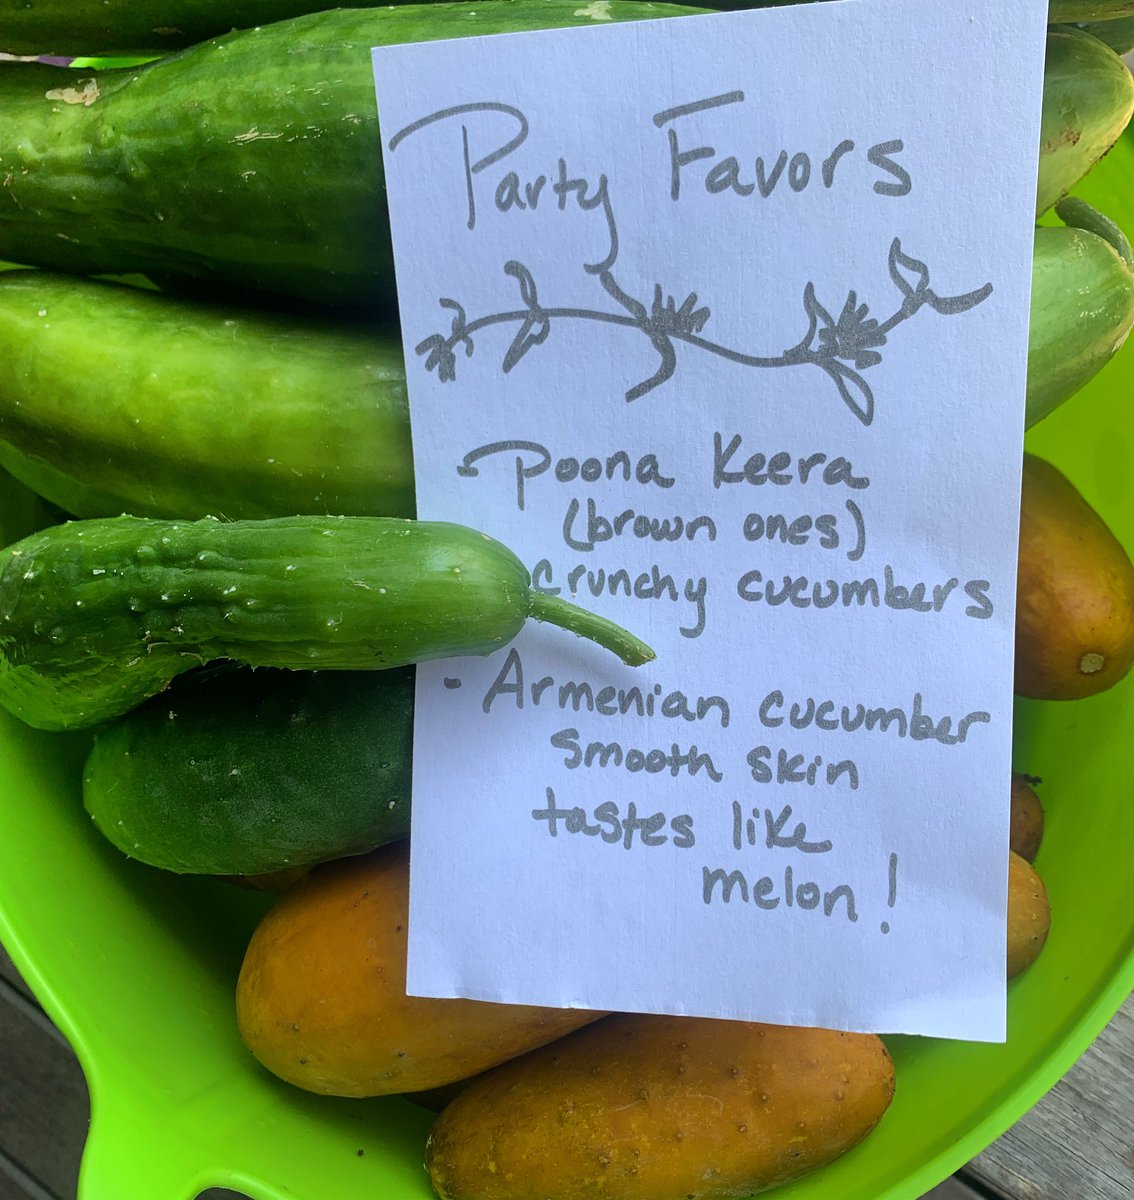 Party Favors
- Poona Keera
(brown ones)
crunchy cucumbers
- Armenian cucumber
smooth skin
tastes like
melon!